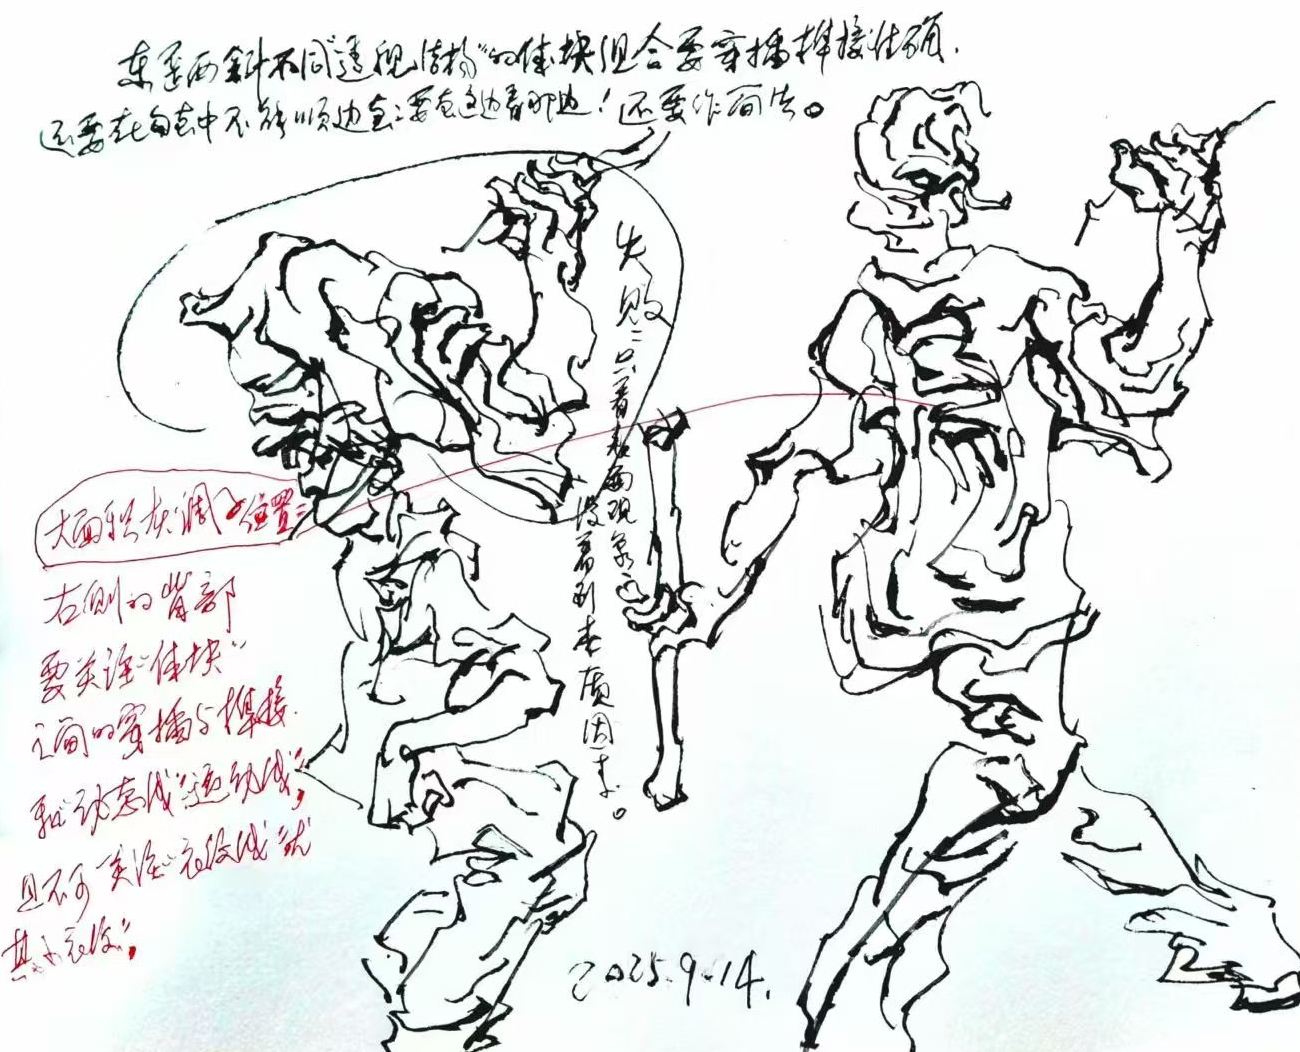 东歪西斜不同"透视结构"的体块组合要穿插榫接准确.
还要在自己中不能顺边走：要在这边看那边！还要作画法。
失败：只看表面现象之
没看到本质因素。
大面积灰调子位置：
右侧的背部
要关注"体块"
之间的穿插与榫接.
和"动态线""运动线",
且不可"关注"衣纹线"就
其小衣纹",
2025.9.14.